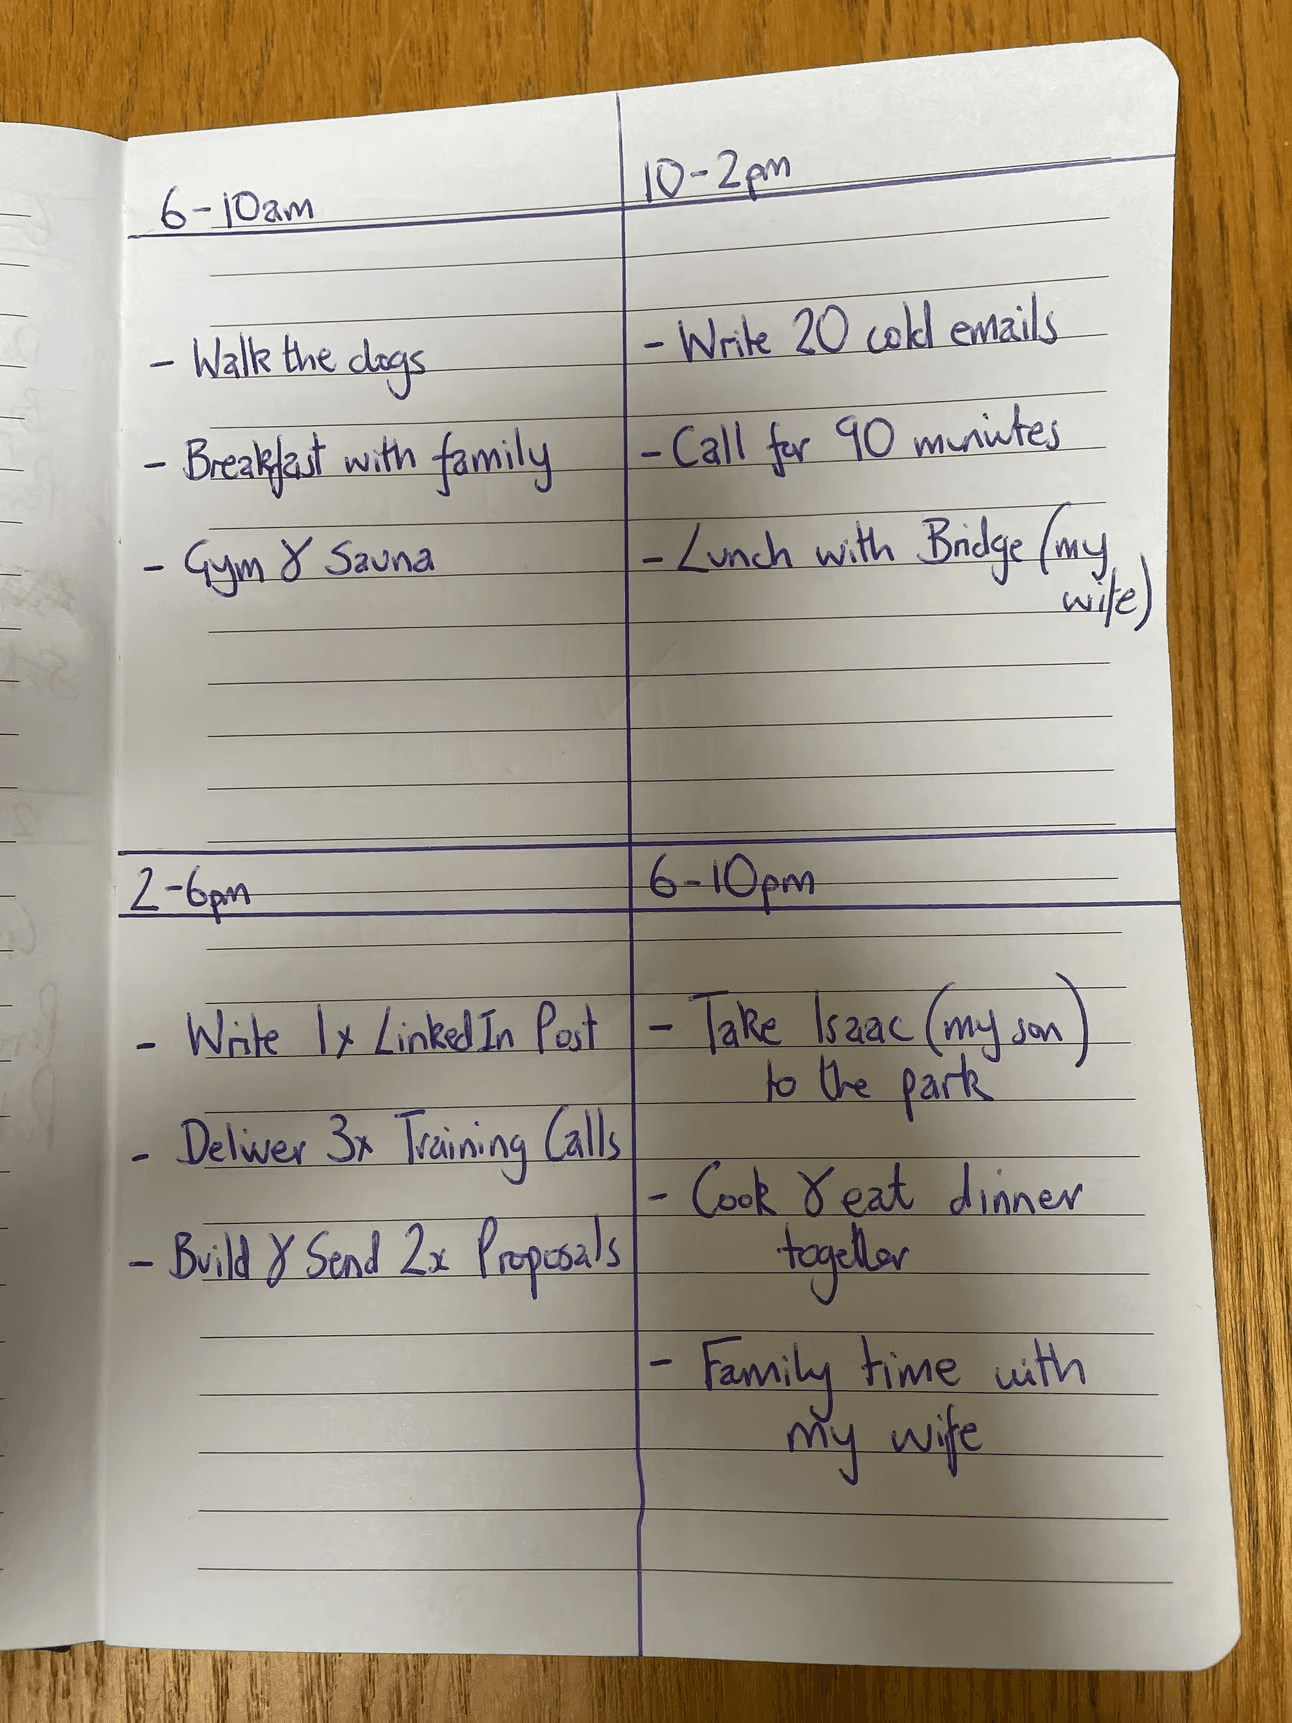 6-10am
- Walk the dogs
- Breakfast with family
- Gym & Sauna
10-2pm
- Write 20 cold emails
- Call for 90 minutes
- Lunch with Bridge (my
wife)
2-6pm
- Write 1x LinkedIn Post
- Deliver 3x Training Calls
- Build & Send 2x Proposals
6-10pm
- Take Isaac (my son)
to the park
- Cook & eat dinner
together
- Family time with
my wife